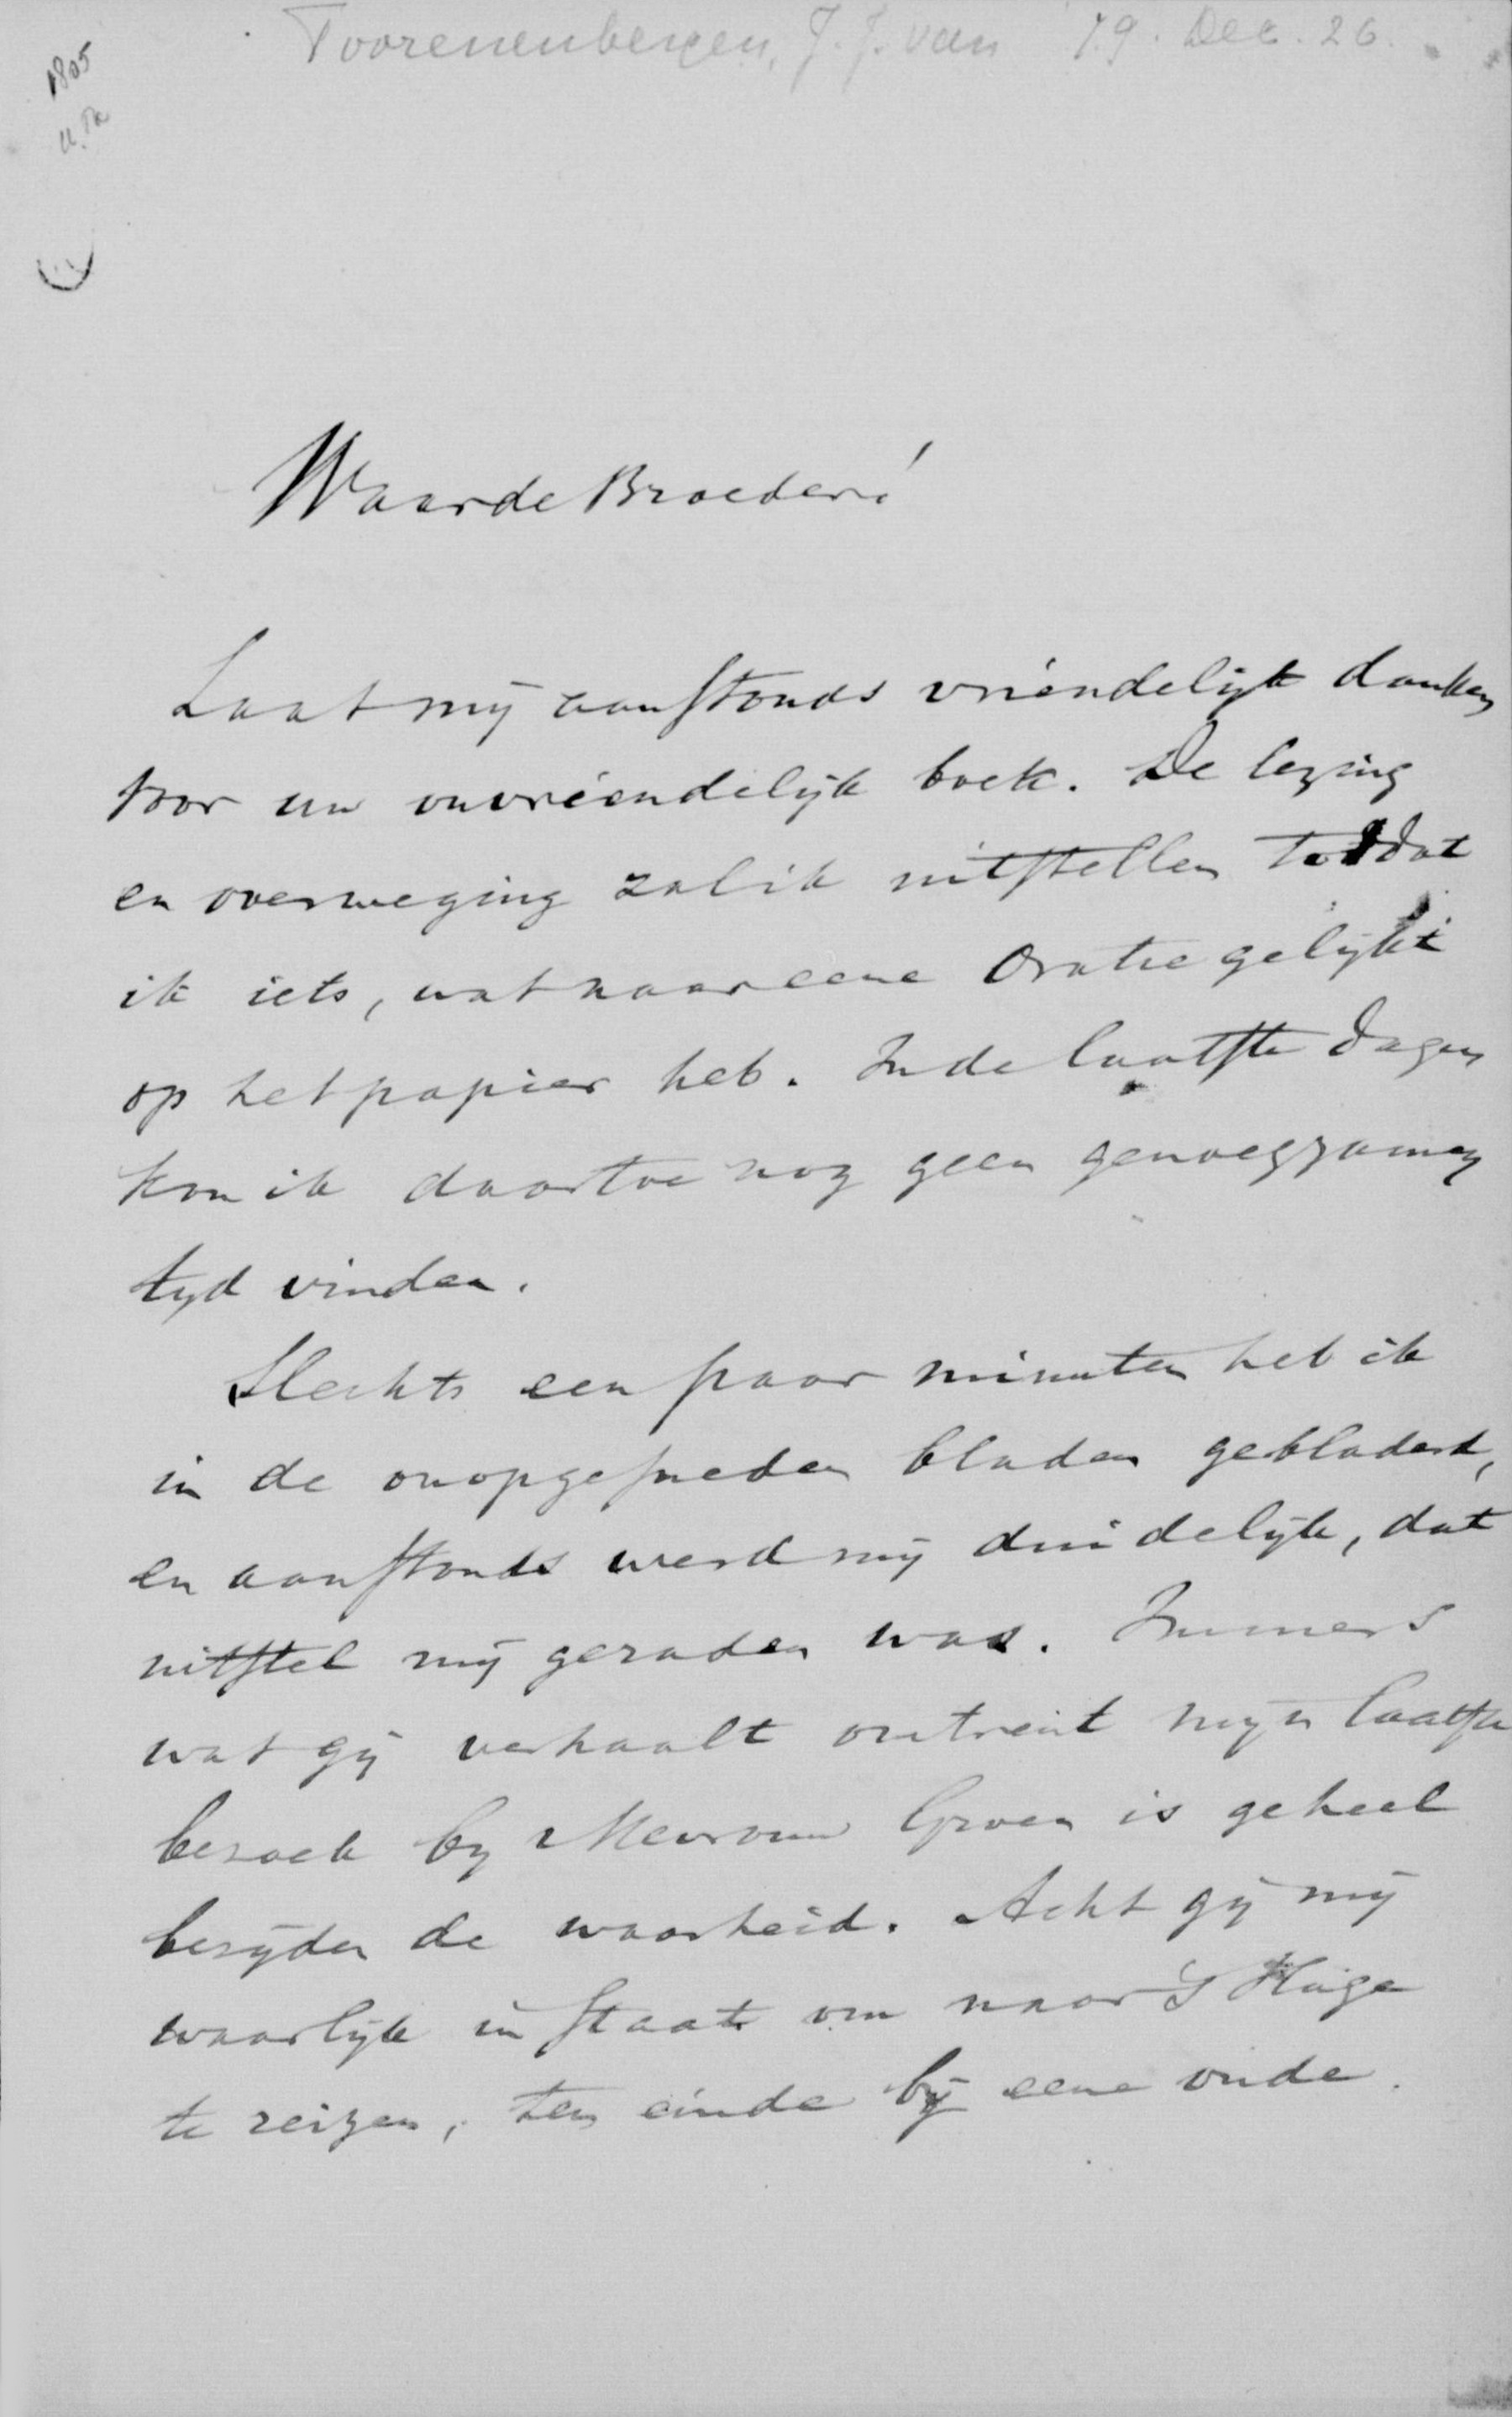 Toorenenbergen, J. J. van 79. Dec. 26.
1805
Waarde Broeder!
Laat mij aanstonds vriendelijk danken
voor uw onvriendelijk boek. De lezing
en overweging zal ik uitstellen totdat
ik iets, wat naar eene Oratie gelijkt
op het papier heb. In de laatste dagen
kon ik daartoe nog geen genoegzamen
tyd vinden.
Slechts een paar minuten heb ik
in de onopgesneden bladen gebladerd,
en aanstonds werd mij duidelijk, dat
uitstel mij geraden was. Immers
wat gij verhaalt omtrent mijn laatste
bezoek by Mevrouw Groen is geheel
bezijden de waarheid. Acht gij mij
waarlijk in staat om naar 's Hage
te reizen, ten einde bij eene oude